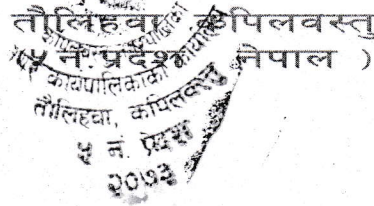 तौलिहवा, कपिलवस्तु
(५ नं. प्रदेश नेपाल )
कार्यपालिकाको कार्यालय
तौलिहवा, कपिलवस्तु
५ नं. प्रदेश
२०७३